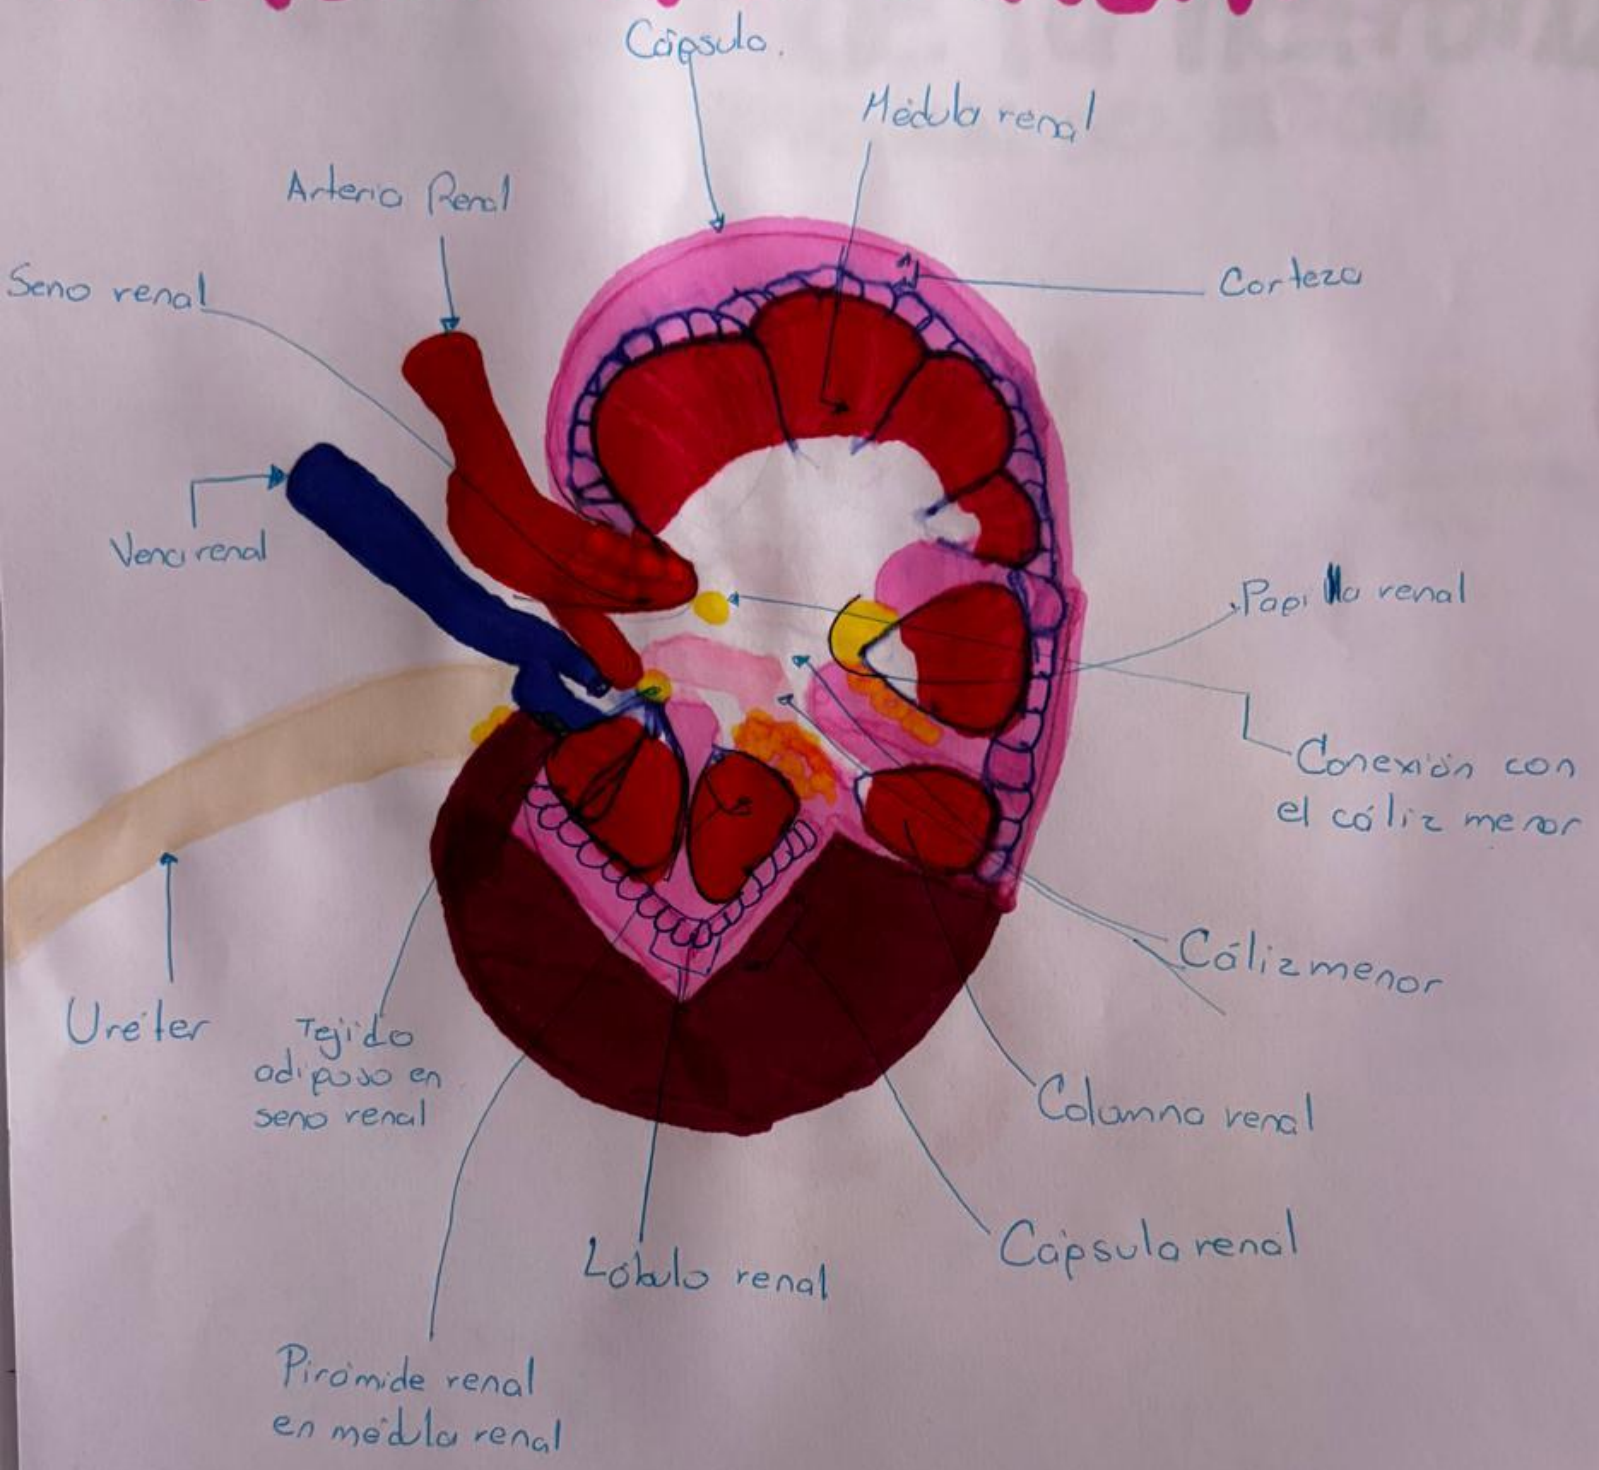 Cápsula.
Médula renal
Arteria Renal
Seno renal
Corteza
Vena renal
Papilla renal
Conexión con
el cáliz menor
Cáliz menor
Uréter
Tejido
adiposo en
seno renal
Columna renal
Cápsula renal
Lóbulo renal
Pirámide renal
en médula renal